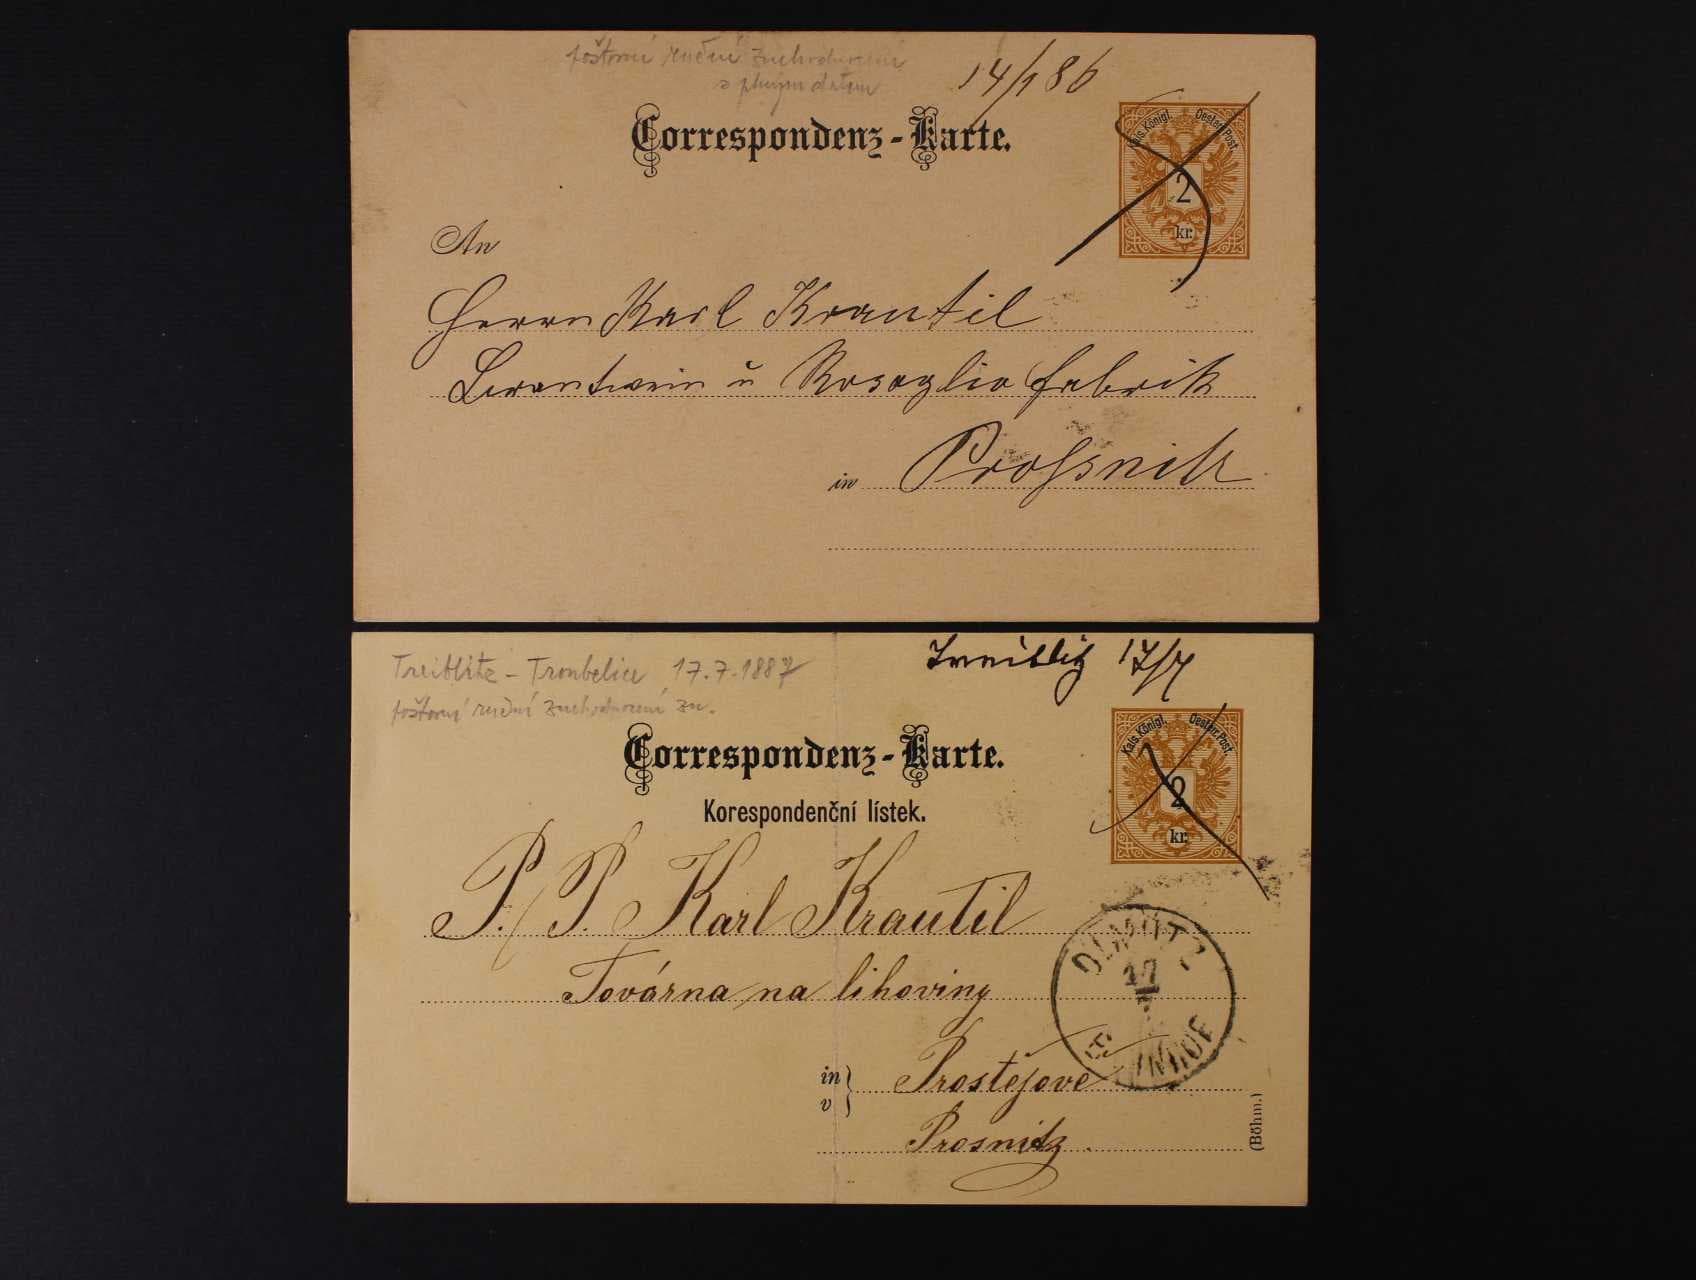 poštovní ruční znehodnocení
s plným datem
14/1 86
Correspondenz-Karte.
Kais. Königl. Oesterr. Post.
2
kr.
An
Herrn Karl Krautil
Branntwein u Rosoglio fabrik
in Proßnitz
Treiblitz - Troubelice 17.7.1887
poštovní ruční znehodnocení zn.
Treiblitz 17/7
Correspondenz-Karte.
Korespondenční lístek.
Kais. Königl. Oesterr. Post.
2
kr.
P. P. Karl Krautil
Továrna na lihoviny
OLMÜTZ
17
7
BAHNHOF
in
v
Prostějově
Prosnitz
(Böhm.)